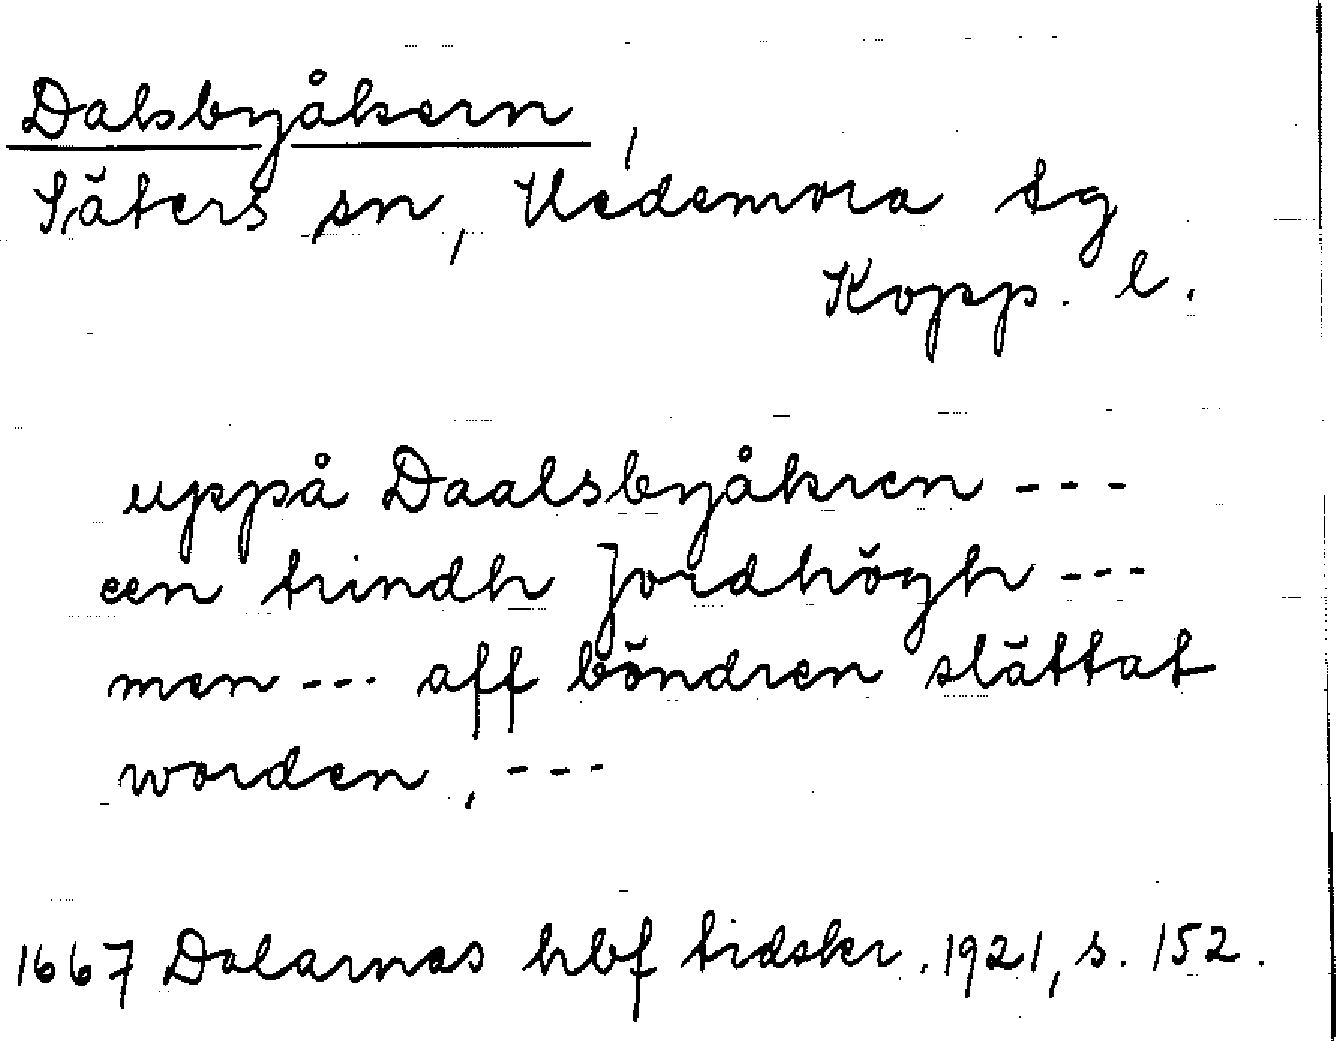 Dalsbyåkern,
Säters sn, Vedemora tg
Kopp. l.
uppå Daalsbyåkren ---
een trindh Jordhögh ---
men --- aff böndren slättat
worden, ---
1667 Dalarnas hbf tidskr. 1921, s. 152.